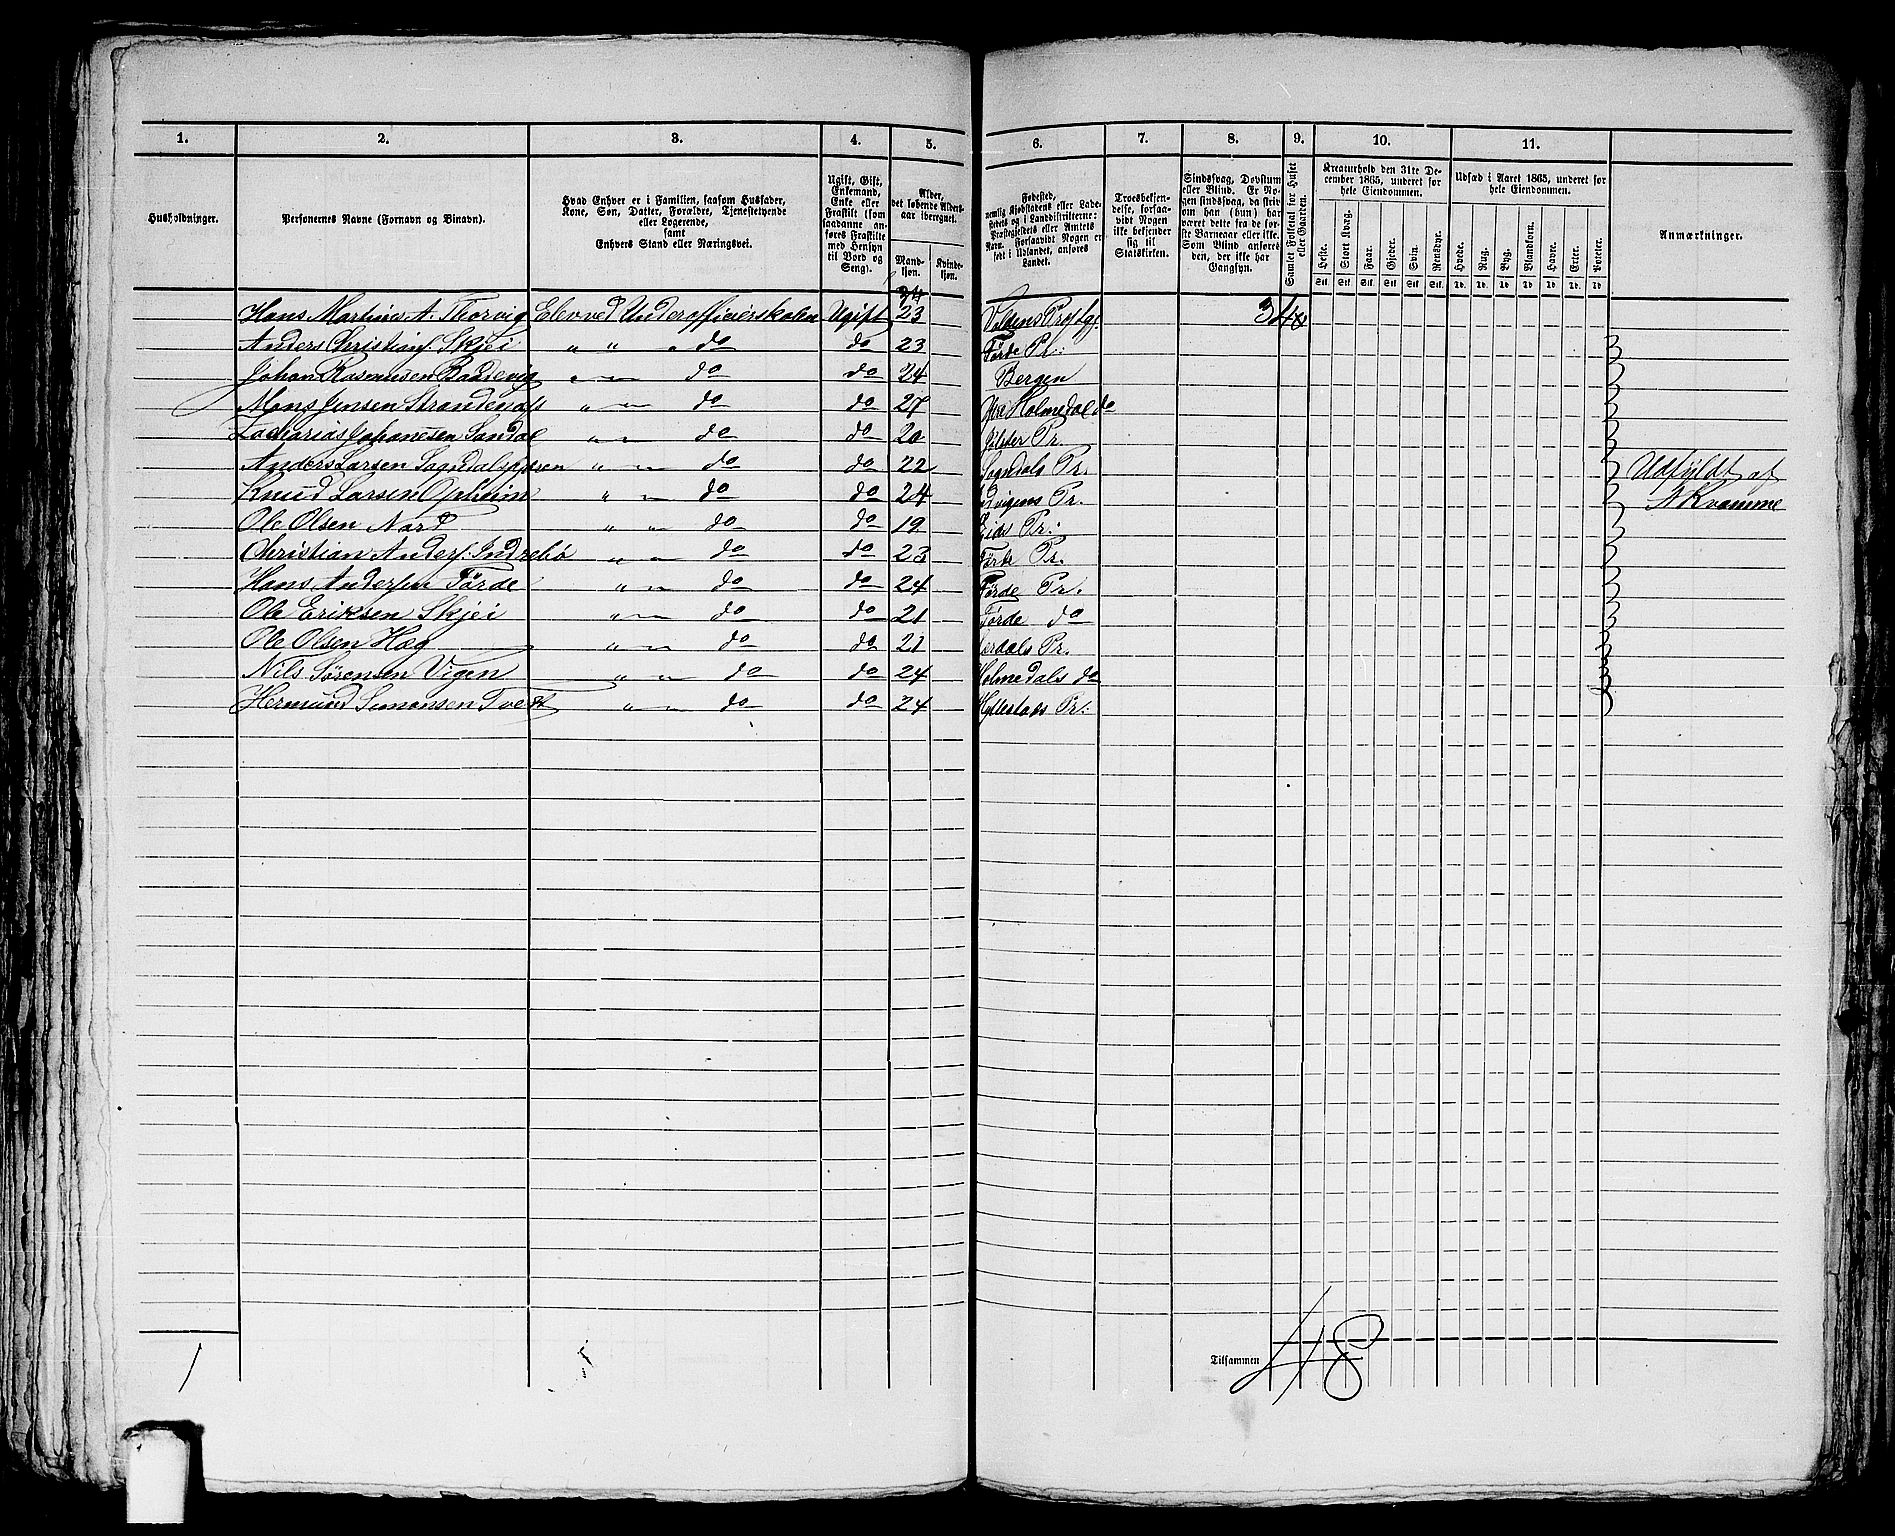 1. 2. 3. 4. 5. 6. 7. 8. 9. 10. 11.
Husholdninger.
Personernes Navne (Fornavn og Binavn).
Hvad Enhver er i Familien, saasom Husfader,
Kone, Søn, Datter, Forældre, Tjenestetyende
eller Logerende,
samt
Enhvers Stand eller Næringsvei.
Ugift, Gift,
Enkemand,
Enke eller
Fraskilt (som
saadanne an-
føres Fraskilte
med Hensyn
til Bord og
Seng).
Alder,
det løbende Alders-
aar iberegnet.
Mand-
kjøn.
Kvinde-
kjøn.
Fødested,
nemlig Kjøbstadens eller Lade-
stedets og i Landdistrikterne:
Præstegjeldets eller Amtets
Navn. Forsaavidt Nogen er
født i Udlandet, anføres
Landet.
Troesbekjen-
delse, forsaa-
vidt Nogen
ikke bekjender
sig til
Statskirken.
Sindssvag, Døvstum
eller Blind. Er No-
gen sindssvag, da skriv
om han (hun) har
været dette fra de før-
ste Barneaar eller ikke.
Som Blind anføres
den, der ikke har
Gangsyn.
Samlet Folketal for Huset
eller Gaarden.
Kreaturhold den 31te De-
cember 1865, underet for
hele Eiendommen.
Heste. Stort Kvæg. Faar. Gjeder. Svin. Rensdyr.
Stk. Stk. Stk. Stk. Stk. Stk.
Udsæd i Aaret 1865, underet for
hele Eiendommen.
Hvede. Rug. Byg. Blandkorn. Havre. Erter. Poteter.
Td. Td. Td. Td. Td. Td. Td.
Anmærkninger.
34
Hans Martinus A. Thorvig Elev ved Underofficierskolen Ugift 23 34
Anders Christians. Skjei " " " do do 23 Førde Pr:
Johan Rasmusen " " do do 24 Bergen
Mons Jensen Strandenæs " " do do 27 Holmedal do
Zacharias Johanesen Sandal " " do do 20 Jølster Pr.
Anders Larsen Sogndalsfjæren " " do do 22 Sogndals Pr. Udfyldt af
Knud Larsen Opheim " " do do 24 Pr. A Kvamme
Ole Olsen Nord " " do do 19 Eids Pr:
Christian Anders. Indrebø " " do do 23 Førde Pr.
Hans Andersen Førde " " do do 24 Førde Pr.
Ole Eriksen Skjei " " do do 21 Førde do
Ole Olsen Hæg " " do do 21 Lerdals Pr.
Nils Sørensen Vigen " " do do 24 Holmedals do
Hermund Simonsen Tvedt " " do do 24 Hyllestads Pr:
1
Tilsammen 48